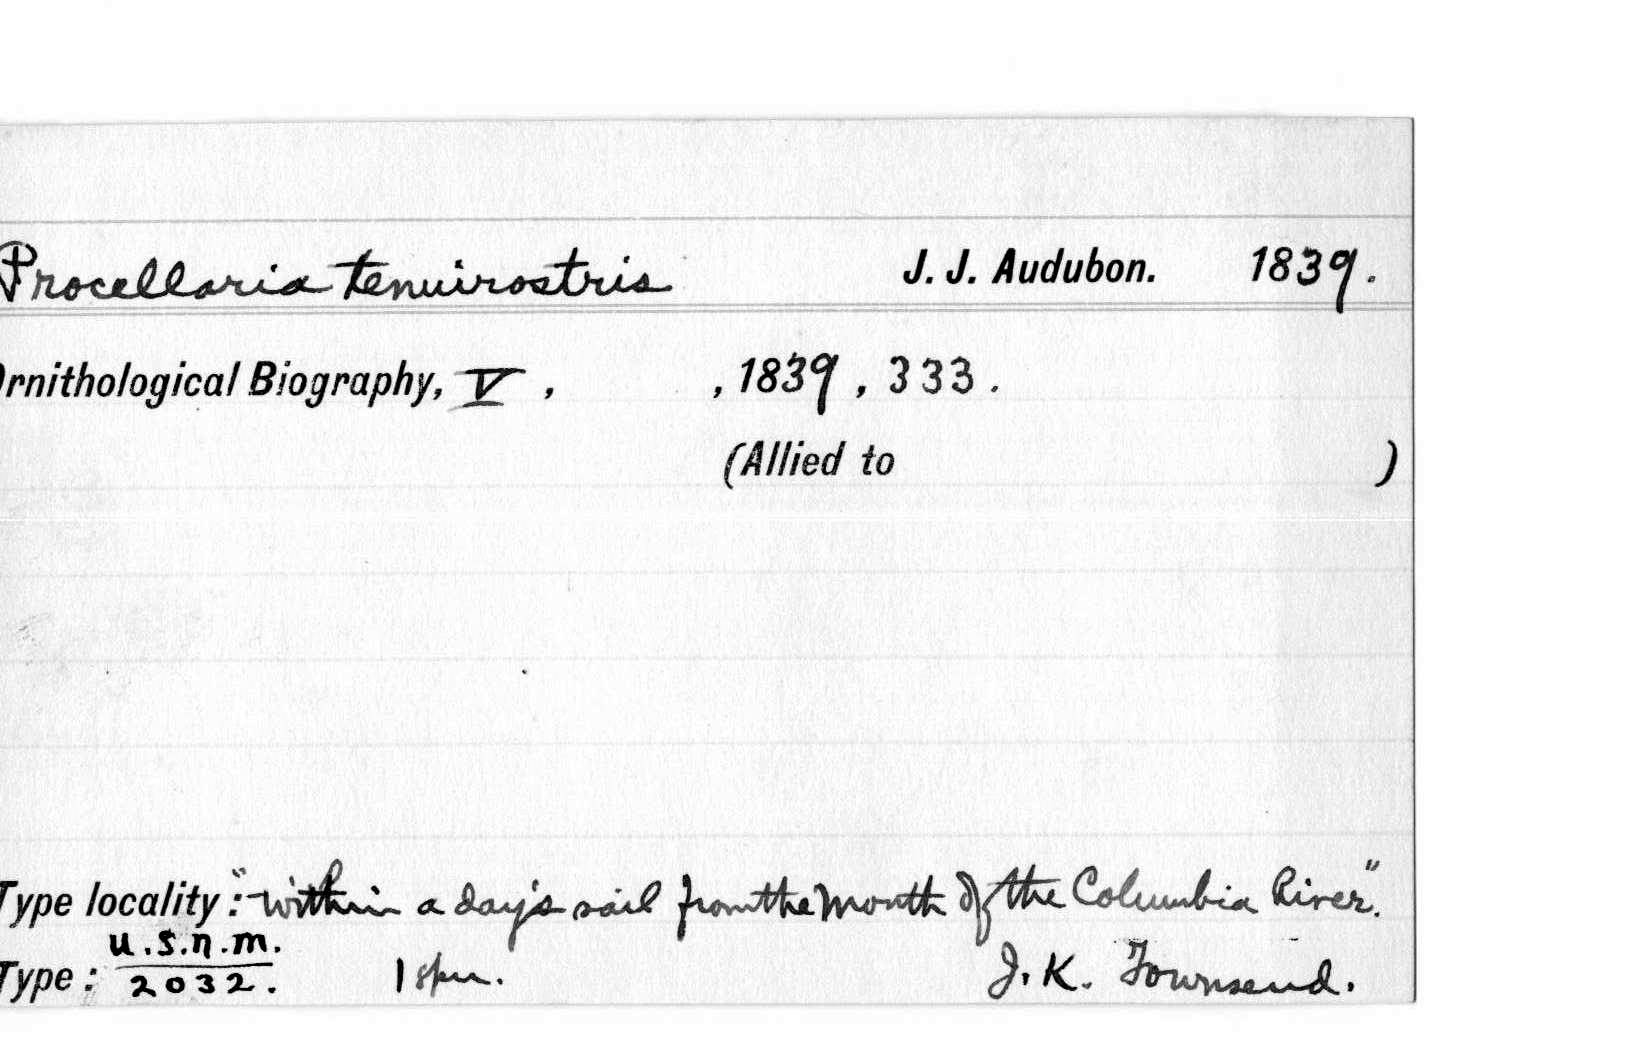 Procellaria tenuirostris J. J. Audubon. 1839.
Ornithological Biography, V , , 1839 , 333 .
(Allied to )
Type locality: "within a day's sail from the mouth of the Columbia River".
U.S.N.M.
Type: 2032. 1 spm. J. K. Townsend.